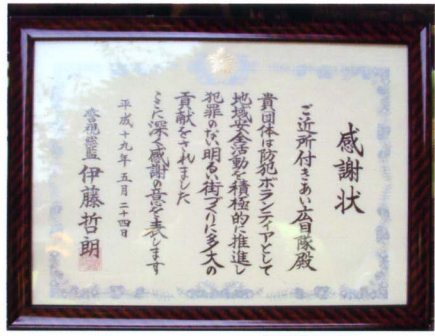 感謝状
ご近所付きあい広目隊殿
貴団体は防犯ボランティアとして
地域安全活動を積極的に推進し
犯罪のない明るい街づくりに多大の
貢献をされました
ここに深く感謝の意を表します
平成十九年五月二十四日
警視総監 伊藤哲朗